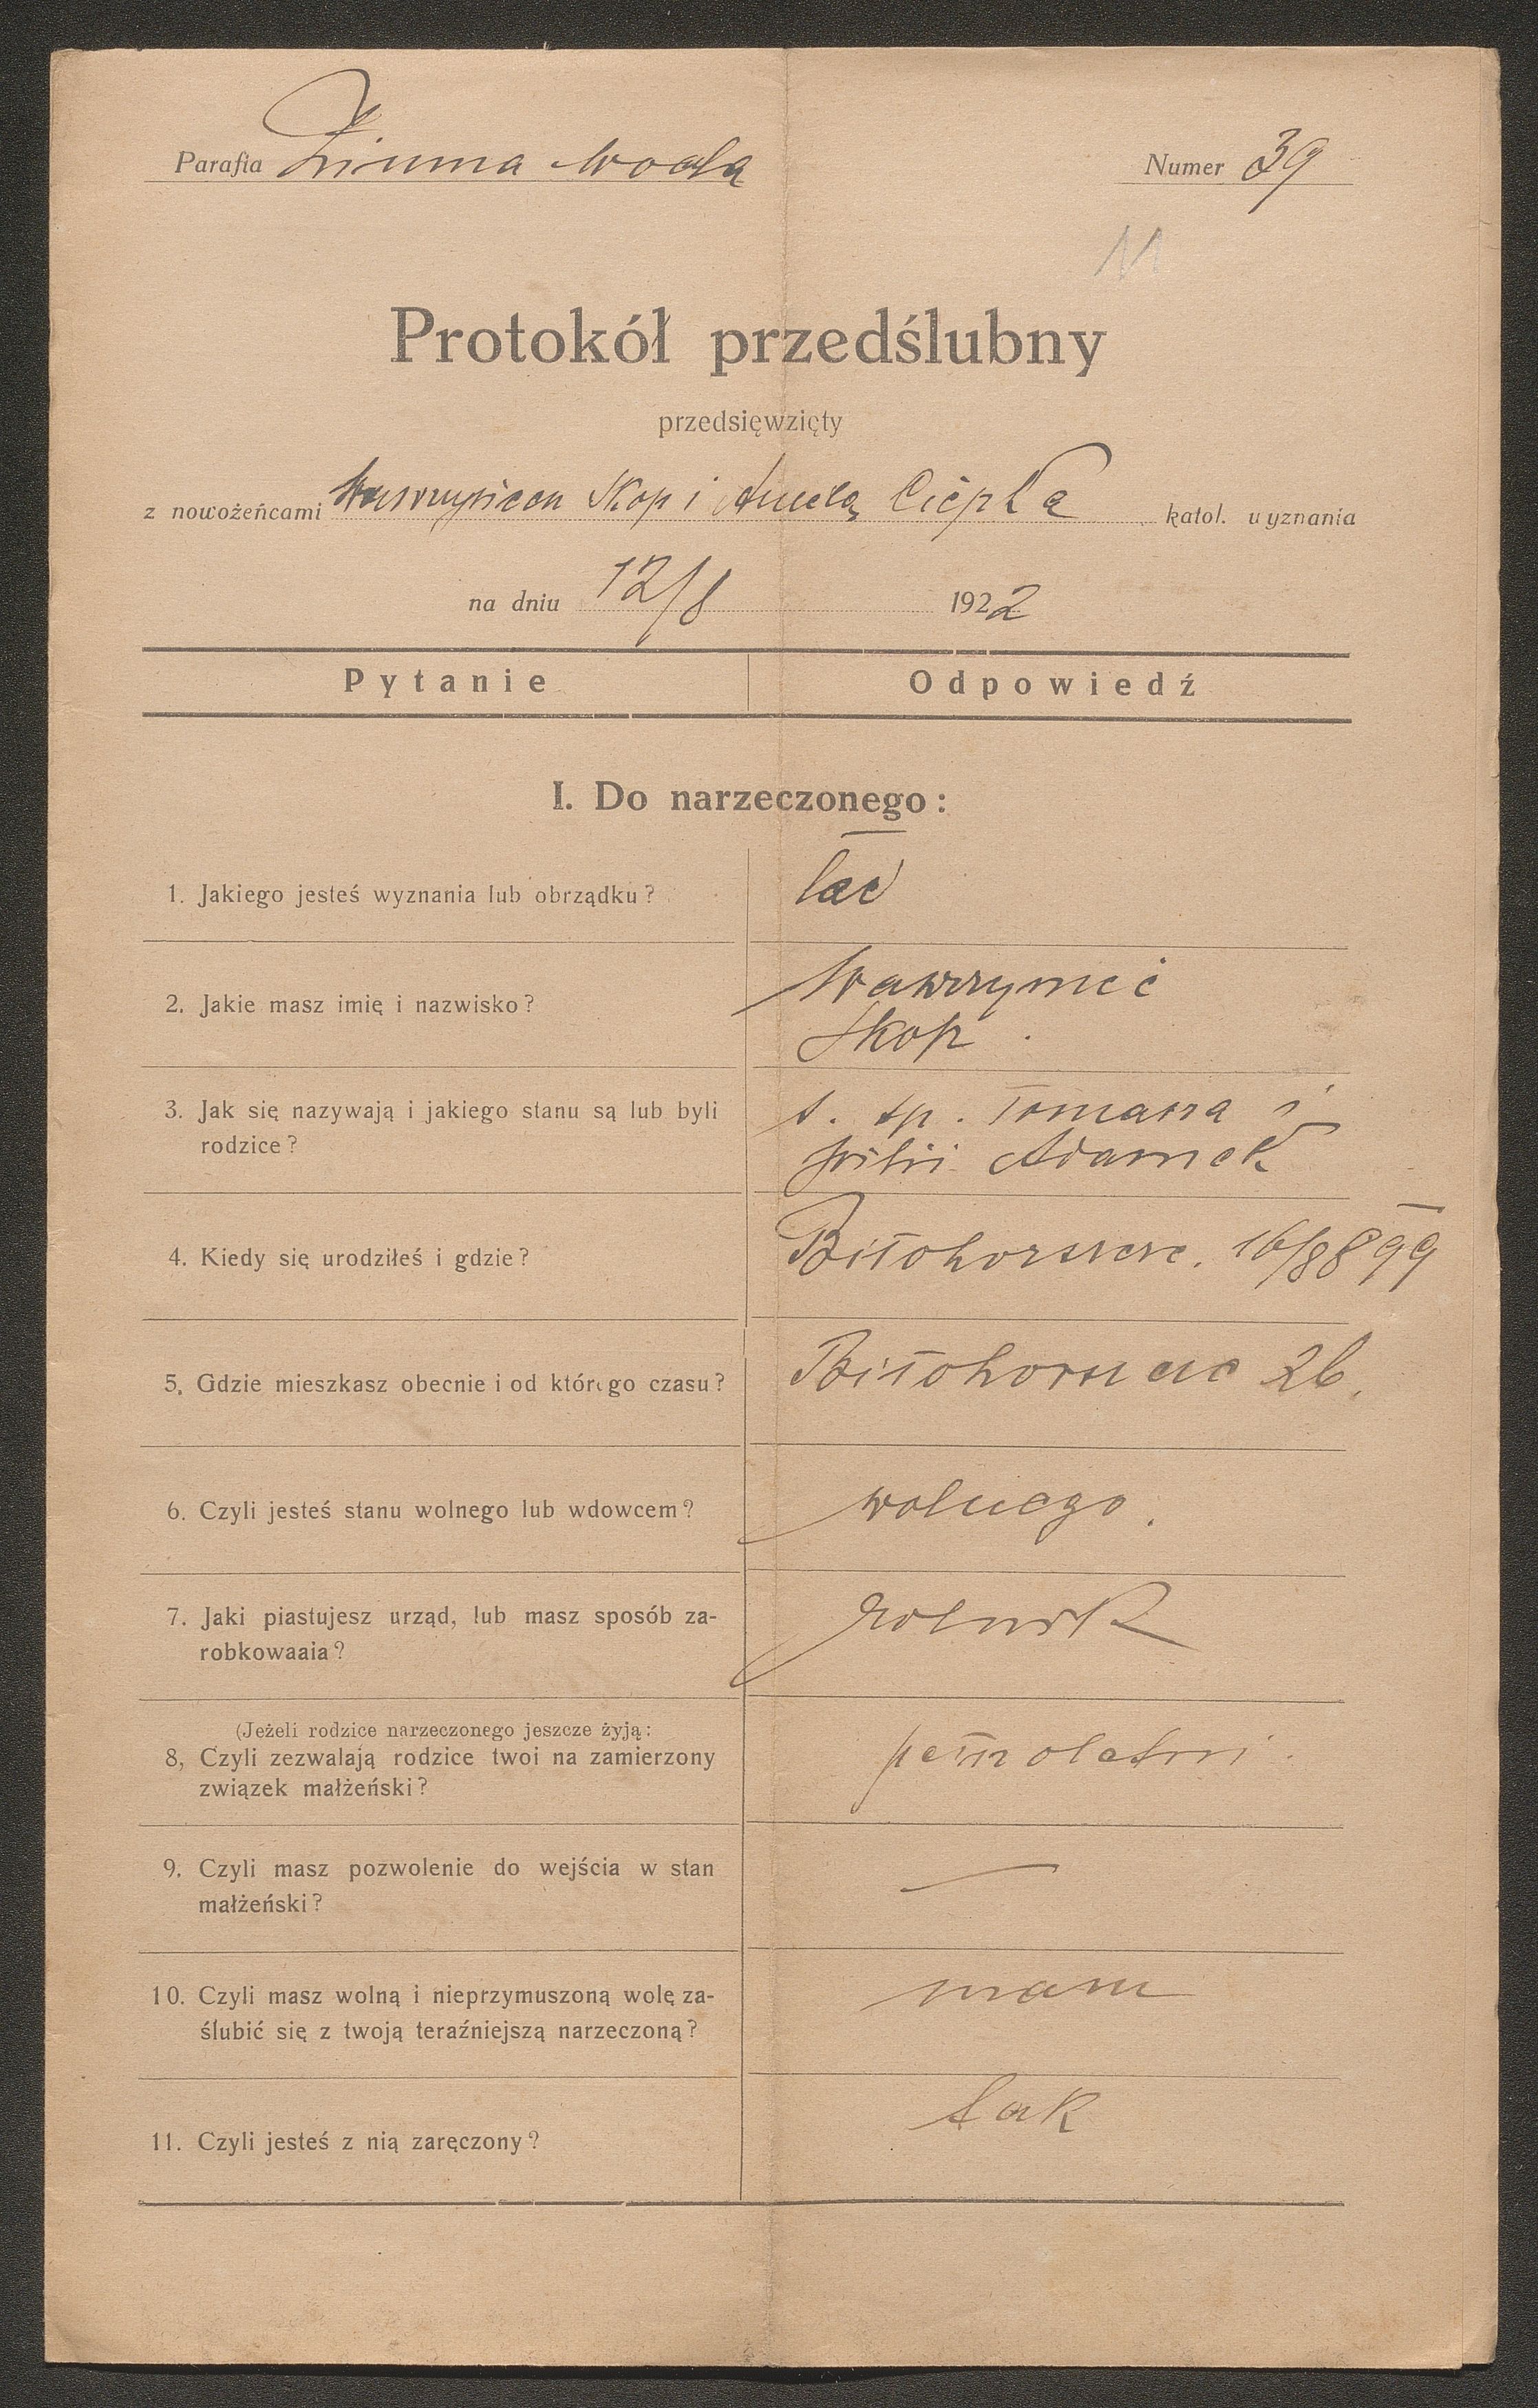 Parafia Zimna Woda
Numer 39
11
Protokół przedślubny
przedsięwzięty
z nowożeńcami Wawrzyńcem Skop i Anielą Ciepła katol. wyznania
na dniu 12/8 1922
Pytanie Odpowiedź
I. Do narzeczonego:
1. Jakiego jesteś wyznania lub obrządku? łać
2. Jakie masz imię i nazwisko? Wawrzyniec
Skop.
3. Jak się nazywają i jakiego stanu są lub byli s. sp. Tomasza i
rodzice? Adamek
4. Kiedy się urodziłeś i gdzie? Biłohorszcze. 16/8 899
5. Gdzie mieszkasz obecnie i od którego czasu? Biłohorszcze 26.
6. Czyli jesteś stanu wolnego lub wdowcem? wolnego.
7. Jaki piastujesz urząd, lub masz sposób za- rolnik
robkowaaia?
(Jeżeli rodzice narzeczonego jeszcze żyją:
8, Czyli zezwalają rodzice twoi na zamierzony pełnoletni.
związek małżeński?
9. Czyli masz pozwolenie do wejścia w stan —
małżeński?
10. Czyli masz wolną i nieprzymuszoną wolę za- mam
ślubić się z twoją teraźniejszą narzeczoną?
11. Czyli jesteś z nią zaręczony? tak